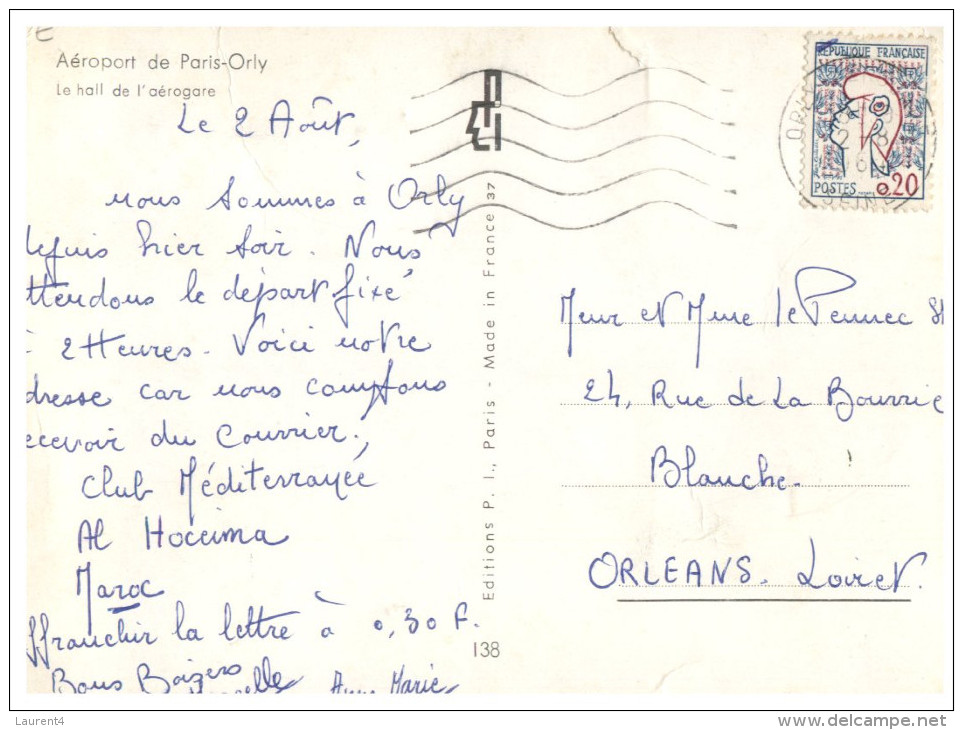 Aéroport de Paris-Orly
Le hall de l'aérogare
Le 2 Août,
nous sommes à Orly
depuis hier soir. Nous
ttendons le départ fixé
2 Heures. Voici notre
dresse car nous comptons
ecevoir du courrier.
Club Méditerranée
Al Hoceima
Maroc
ffranchir la lettre à 0,30 F.
Bons Baizers
Anne Marie
Editions P. I., Paris - Made in France 37
138
REPUBLIQUE FRANÇAISE
POSTES 0,20
ORLY
SEINE
Meur et Mme le Pennec
24, Rue de La Bourrie
Blanche.
ORLEANS. Loiret.
Laurent4
www.delcampe.net